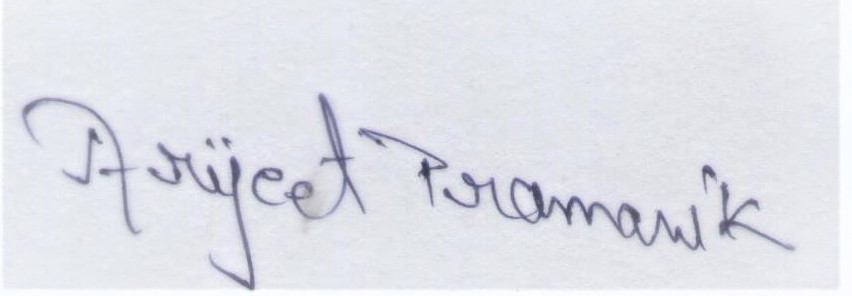 Arijeet Pramanik